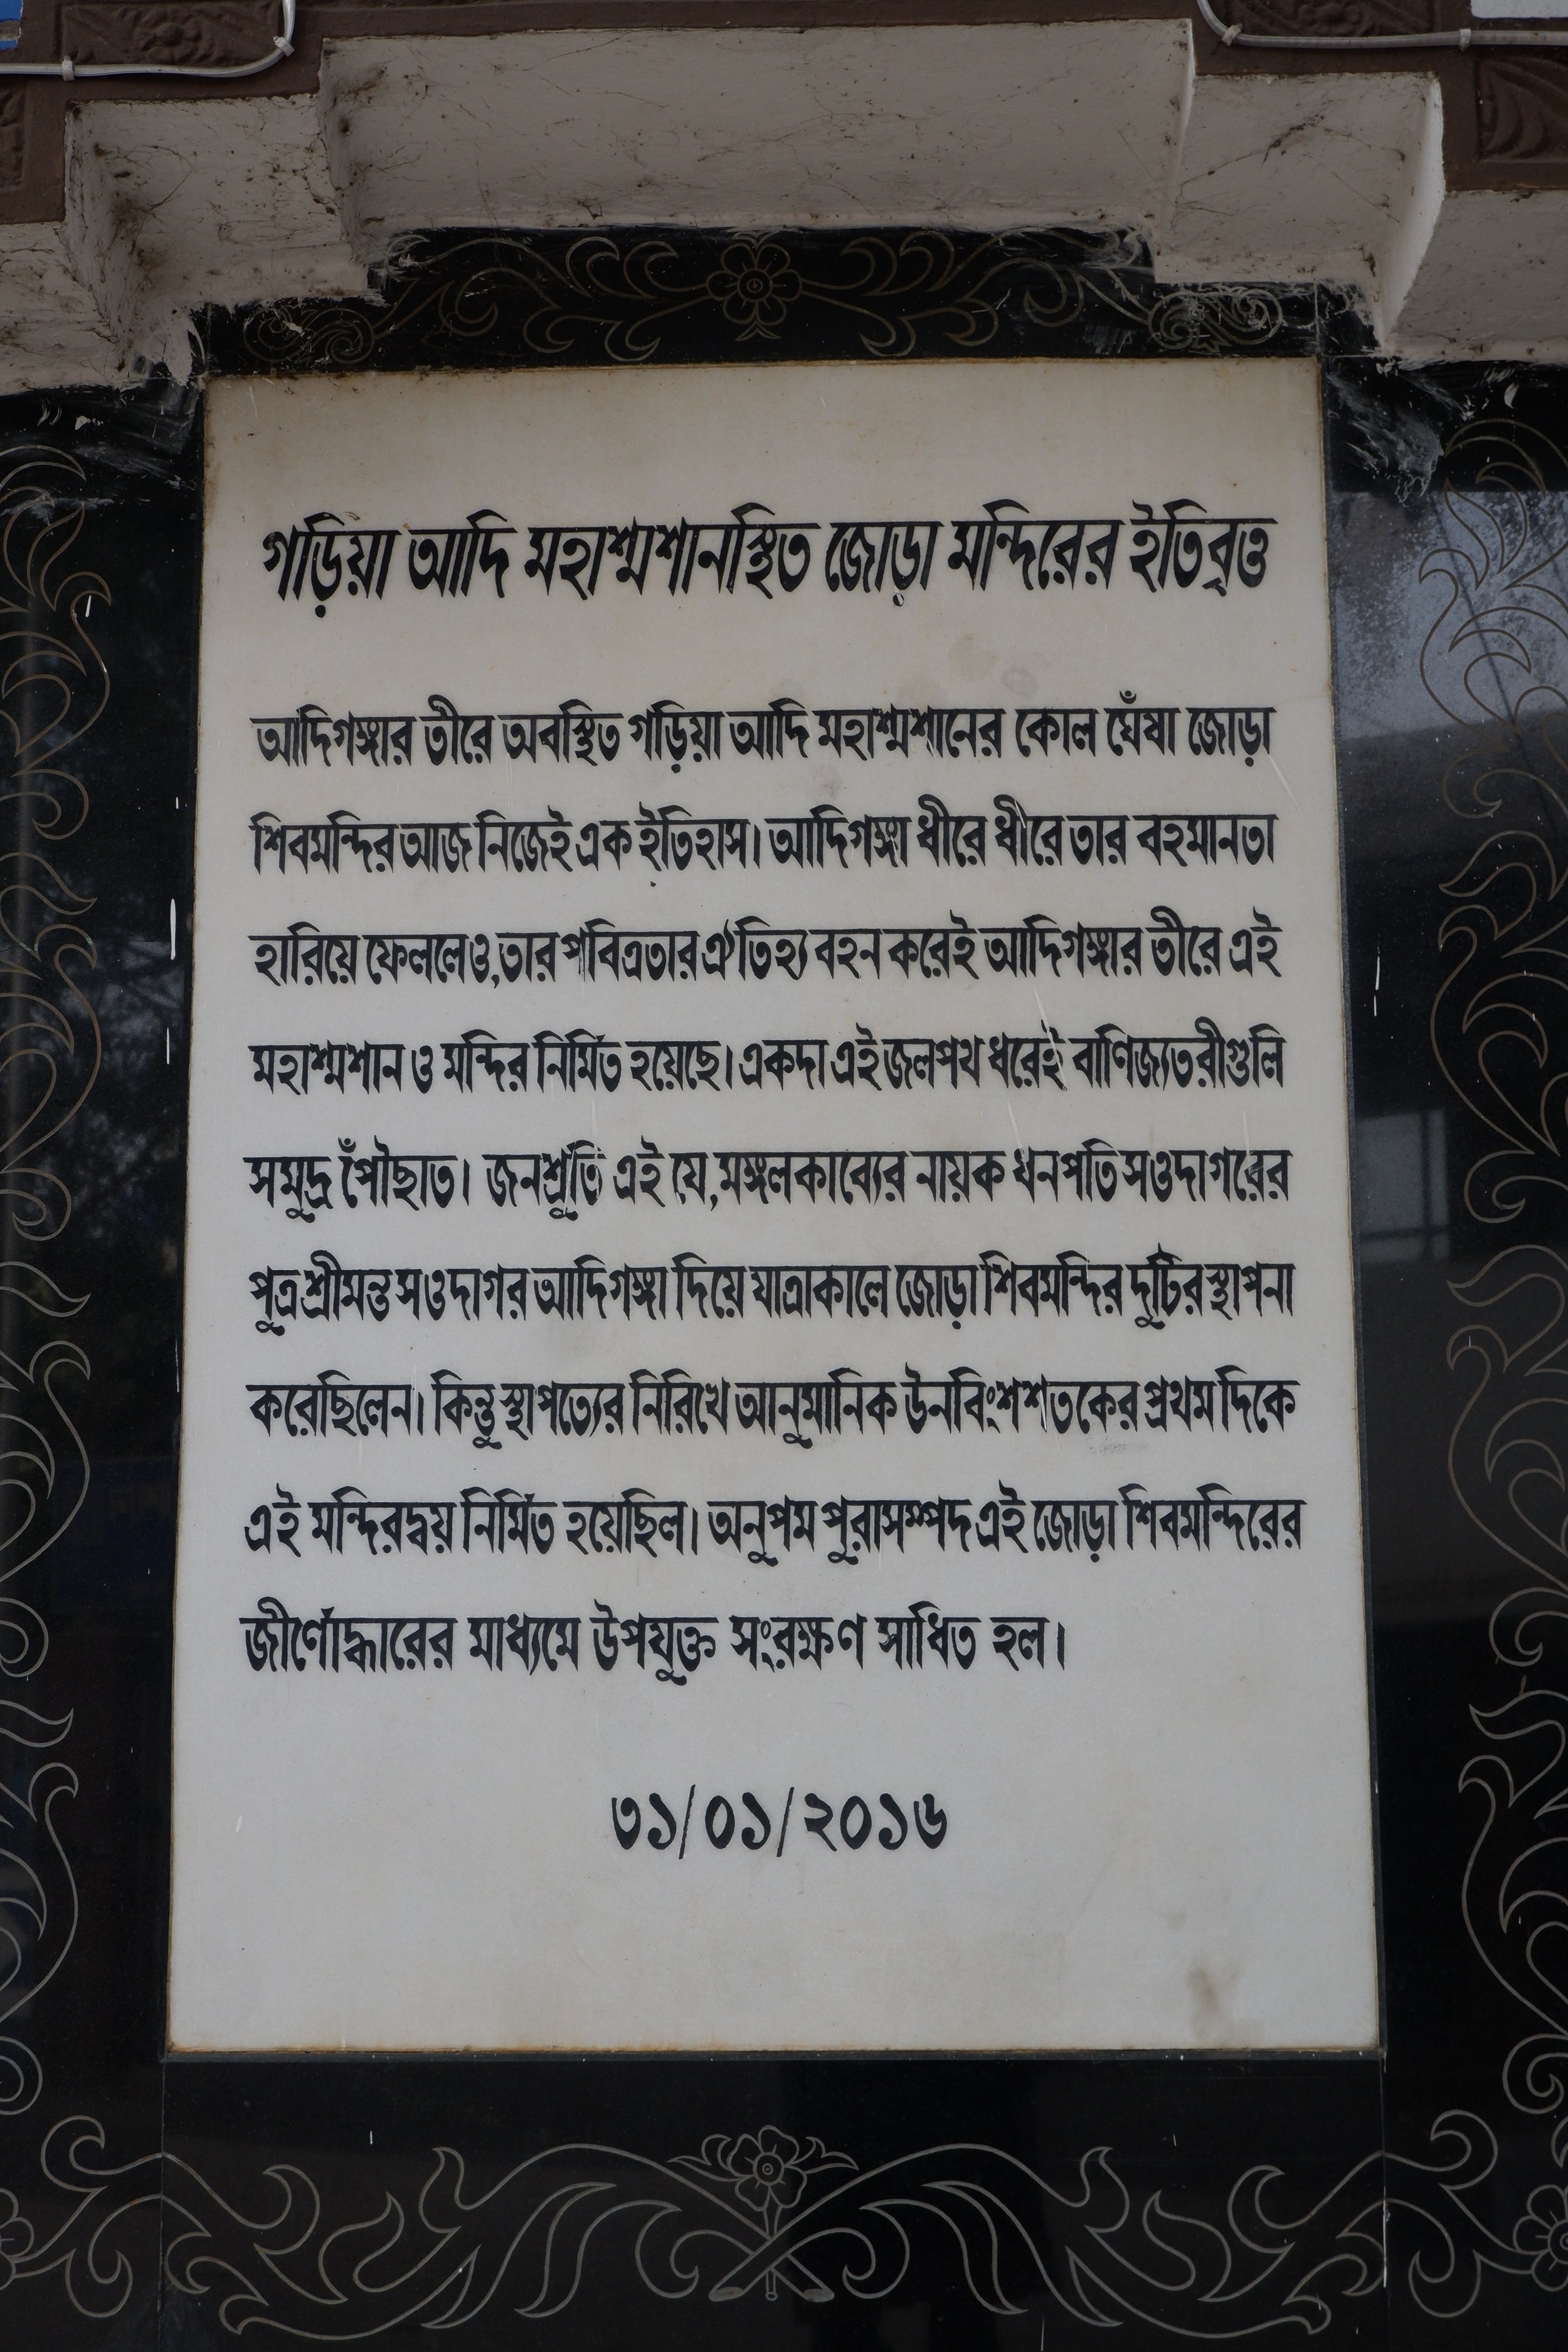 গড়িয়া আদি মহাশ্মশানস্থিত জোড়া মন্দিরের ইতিবৃত্ত
আদিগঙ্গার তীরে অবস্থিত গড়িয়া আদি মহাশ্মশানের কোল ঘেঁষা জোড়া
শিবমন্দির আজ নিজেই এক ইতিহাস। আদিগঙ্গা ধীরে ধীরে তার বহমানতা
হারিয়ে ফেললেও, তার পবিত্রতার ঐতিহ্য বহন করেই আদিগঙ্গার তীরে এই
মহাশ্মশান ও মন্দির নির্মিত হয়েছে। একদা এই জলপথ ধরেই বাণিজ্যতরীগুলি
সমুদ্রে পৌঁছাত। জনশ্রুতি এই যে, মঙ্গলকাব্যের নায়ক ধনপতি সওদাগরের
পুত্র শ্রীমন্ত সওদাগর আদিগঙ্গা দিয়ে যাত্রাকালে জোড়া শিবমন্দির দুটির স্থাপনা
করেছিলেন। কিন্তু স্থাপত্যের নিরিখে আনুমানিক উনবিংশ শতকের প্রথম দিকে
এই মন্দিরদ্বয় নির্মিত হয়েছিল। অনুপম পুরাসম্পদ এই জোড়া শিবমন্দিরের
জীর্ণোদ্ধারের মাধ্যমে উপযুক্ত সংরক্ষণ সাধিত হল।
৩১/০১/২০১৬